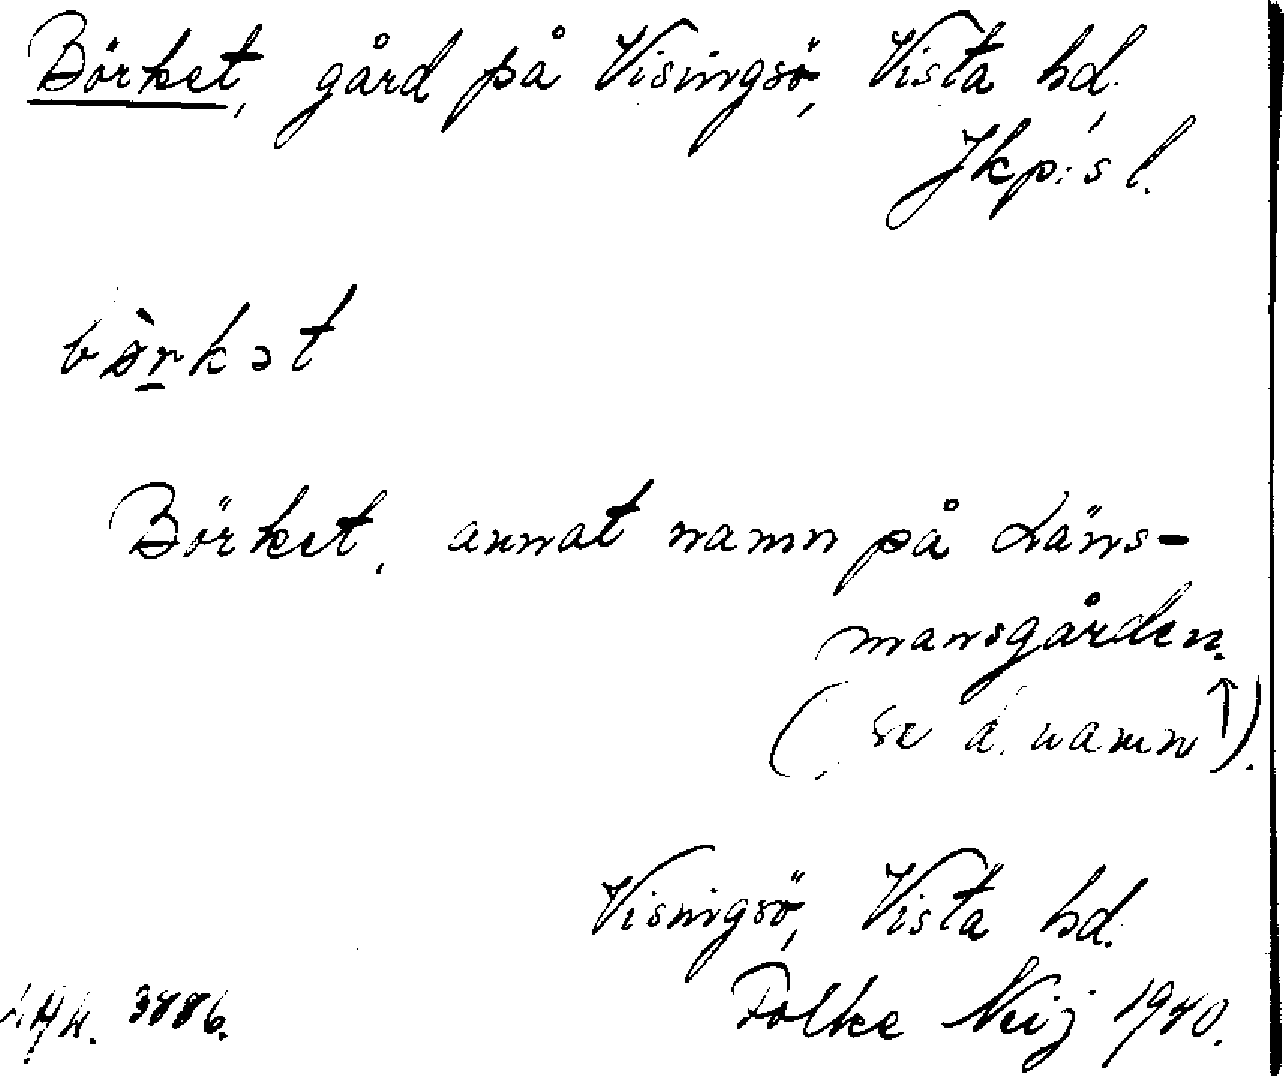 Börket, gård på Visingsö, Vista hd,
Jkp:s l.
bö̀rkət
Börket, annat namn på Läns-
mansgården.
(se d. namn ↑).
Visingsö, Vista hd.
3886. Folke Neij 1940.